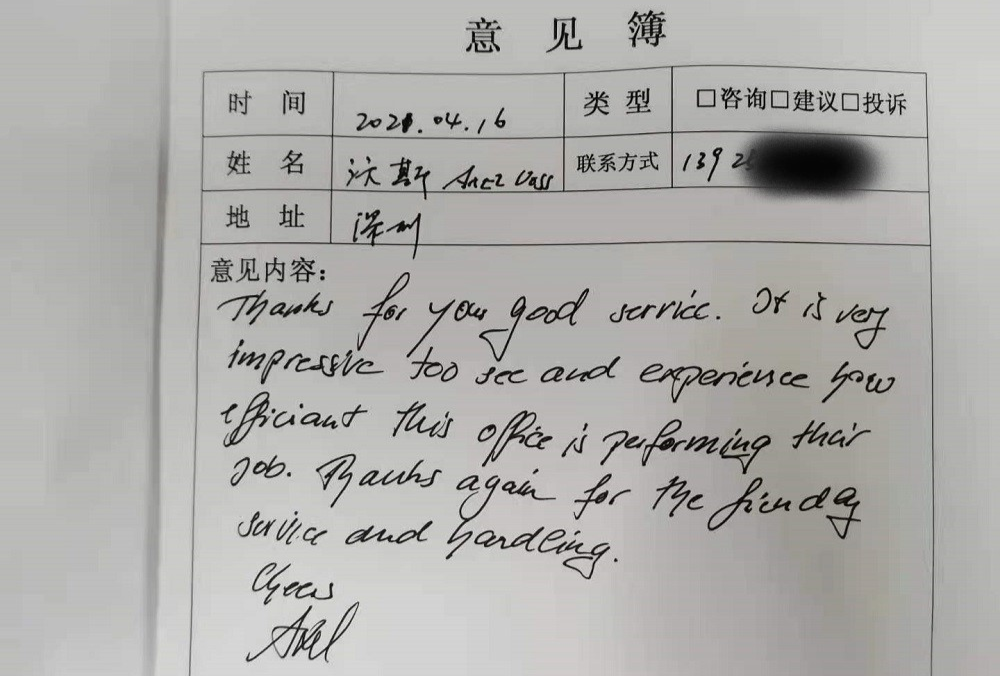 意见簿
时间 2021.04.16 类型 □咨询□建议□投诉
姓名 汶斯 Axel Vass 联系方式 139 2
地址 深圳
意见内容:
Thanks for your good service. It is very
impressive too see and experience how
efficiant this office is performing their
job. Thanks again for the friendly
service and handling.
Cheers
Axel